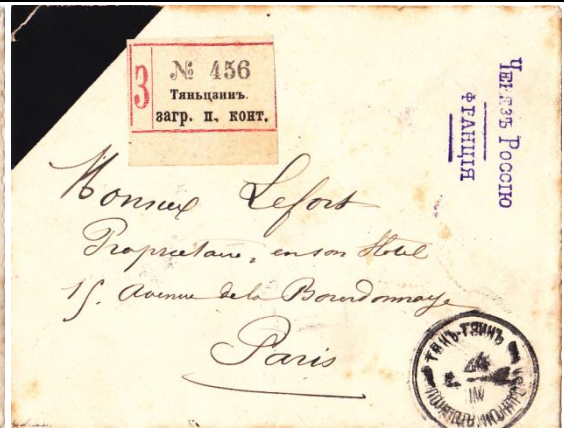 З
№ 456
Тяньцзинъ.
загр. п. конт.
Черезъ Россію
Франція
Monsieur Lefort
Propriétaire, en son Hotel
15. Avenue de la Bourdonnaye
Paris
ТЯНЬ-ТЗИНЪ
IV